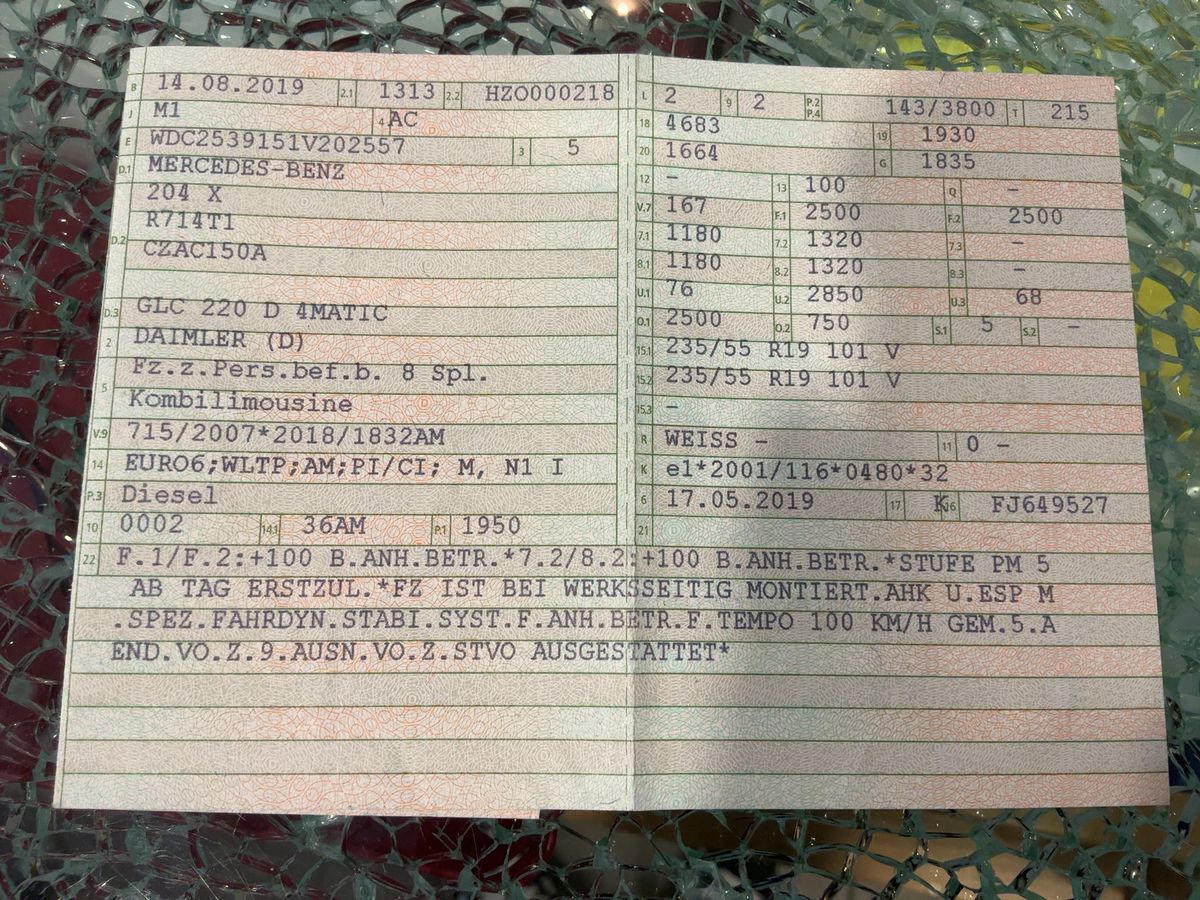 B 14.08.2019 2.1 1313 2.2 HZO000218
J M1 4 AC
E WDC2539151V202557 3 5
D.1 MERCEDES-BENZ
204 X
D.2 R714T1
CZAC150A
D.3 GLC 220 D 4MATIC
2 DAIMLER (D)
5 Fz.z.Pers.bef.b. 8 Spl.
Kombilimousine
V.9 715/2007*2018/1832AM
14 EURO6;WLTP;AM;PI/CI; M, N1 I
P.3 Diesel
10 0002 14.1 36AM P.1 1950
L 2 9 2 P.2 P.4 143/3800 T 215
18 4683 19 1930
20 1664 G 1835
12 – 13 100 Q –
V.7 167 F.1 2500 F.2 2500
7.1 1180 7.2 1320 7.3 –
8.1 1180 8.2 1320 8.3 –
U.1 76 U.2 2850 U.3 68
O.1 2500 O.2 750 S.1 5 S.2 –
15.1 235/55 R19 101 V
15.2 235/55 R19 101 V
15.3 –
R WEISS – 11 0 –
K e1*2001/116*0480*32
6 17.05.2019 17 K 16 FJ649527
21
22 F.1/F.2:+100 B.ANH.BETR.*7.2/8.2:+100 B.ANH.BETR.*STUFE PM 5
AB TAG ERSTZUL.*FZ IST BEI WERKSSEITIG MONTIERT.AHK U.ESP M
.SPEZ.FAHRDYN.STABI.SYST.F.ANH.BETR.F.TEMPO 100 KM/H GEM.5.A
END.VO.Z.9.AUSN.VO.Z.STVO AUSGESTATTET*